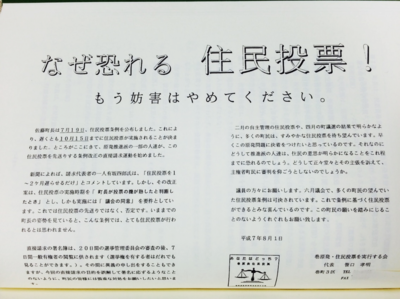 なぜ恐れる 住民投票！
もう妨害はやめてください。
佐藤町長は7月19日、住民投票条例を公布しました。これにより、
遅くとも10月15日までに住民投票が実施されることが決まり
ました。ところがここにきて、原発推進派の一部の人達が、この
住民投票を先送りする条例改正の直接請求運動を始めました。
「住民投票を1
～2ヶ月遅らせるだけ」とコメントしています。しかし、その改正
案は、住民投票の実施時期を「町長が
とき」とし、しかも実施には「議会の同意」を要件として
います。これでは住民投票の先送りではなく、否定です。いままでの
町長の姿勢を見ていると、こんな条例では、とても住民投票が行わ
れるとは思われません。
直接請求の署名簿は、20日間の選挙管理委員会の審査の後、7
日間一般有権者の閲覧に供されます
二月の自主管理の住民投票や、四月の町議選の結果で明らかなよ
うに、多くの町民は、すみやかな住民投票を待ち望んでいます。早
くこの原発問題に決着をつけたいと思っているのです。それなのに
どうして推進派の人達は、住民の意思が明らかになることをこれ程
までに恐れるのでしょう。どうして正々堂々とその主張を訴えて、
主権者町民に審判を仰ごうとしないのでしょうか。
議員の方々にお願いします。六月議会で、多くの町民の望んでい
た住民投票条例は可決されています。これで条例に基づく住民投票
ができるとみな喜んでいるのです。この町民の願いを踏みにじるこ
とのないようくれぐれもお願い致します。
平成7年8月1日
巻原発・住民投票を実行する会
代表 笹口孝明